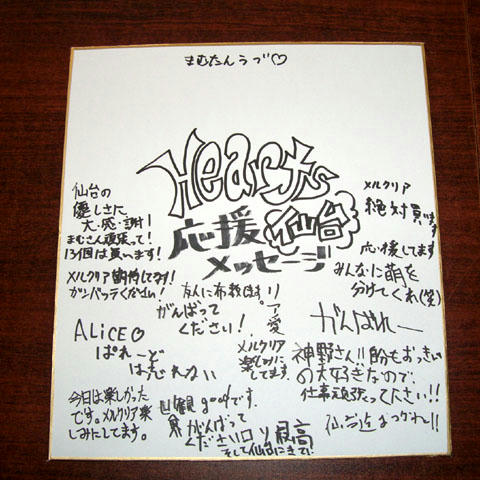 まむたんラブ♡
Hearts
仙台
応援
メッセージ
仙台の
優しさに
大・感・謝!
まむさん頑張って!
13個は買います!
メルクリア期待してます!
ガンバッテください!
ALICE♡
ぱれーど
は売れない
今日は楽しかった
です。メルクリア楽
しみにしてます。
友人に布教します
がんばって
ください!
リア愛
メルクリア
楽しみに
してます。
世界観 goodです。
がんばって
ください
ロリ最高
そして仙台にきて!
メルクリア
絶対買います
応援してます
みんなに萌を
分けてくれ(笑)
がんばれー
神野さん!!
の大好きなので、
仕事頑張ってたい!!